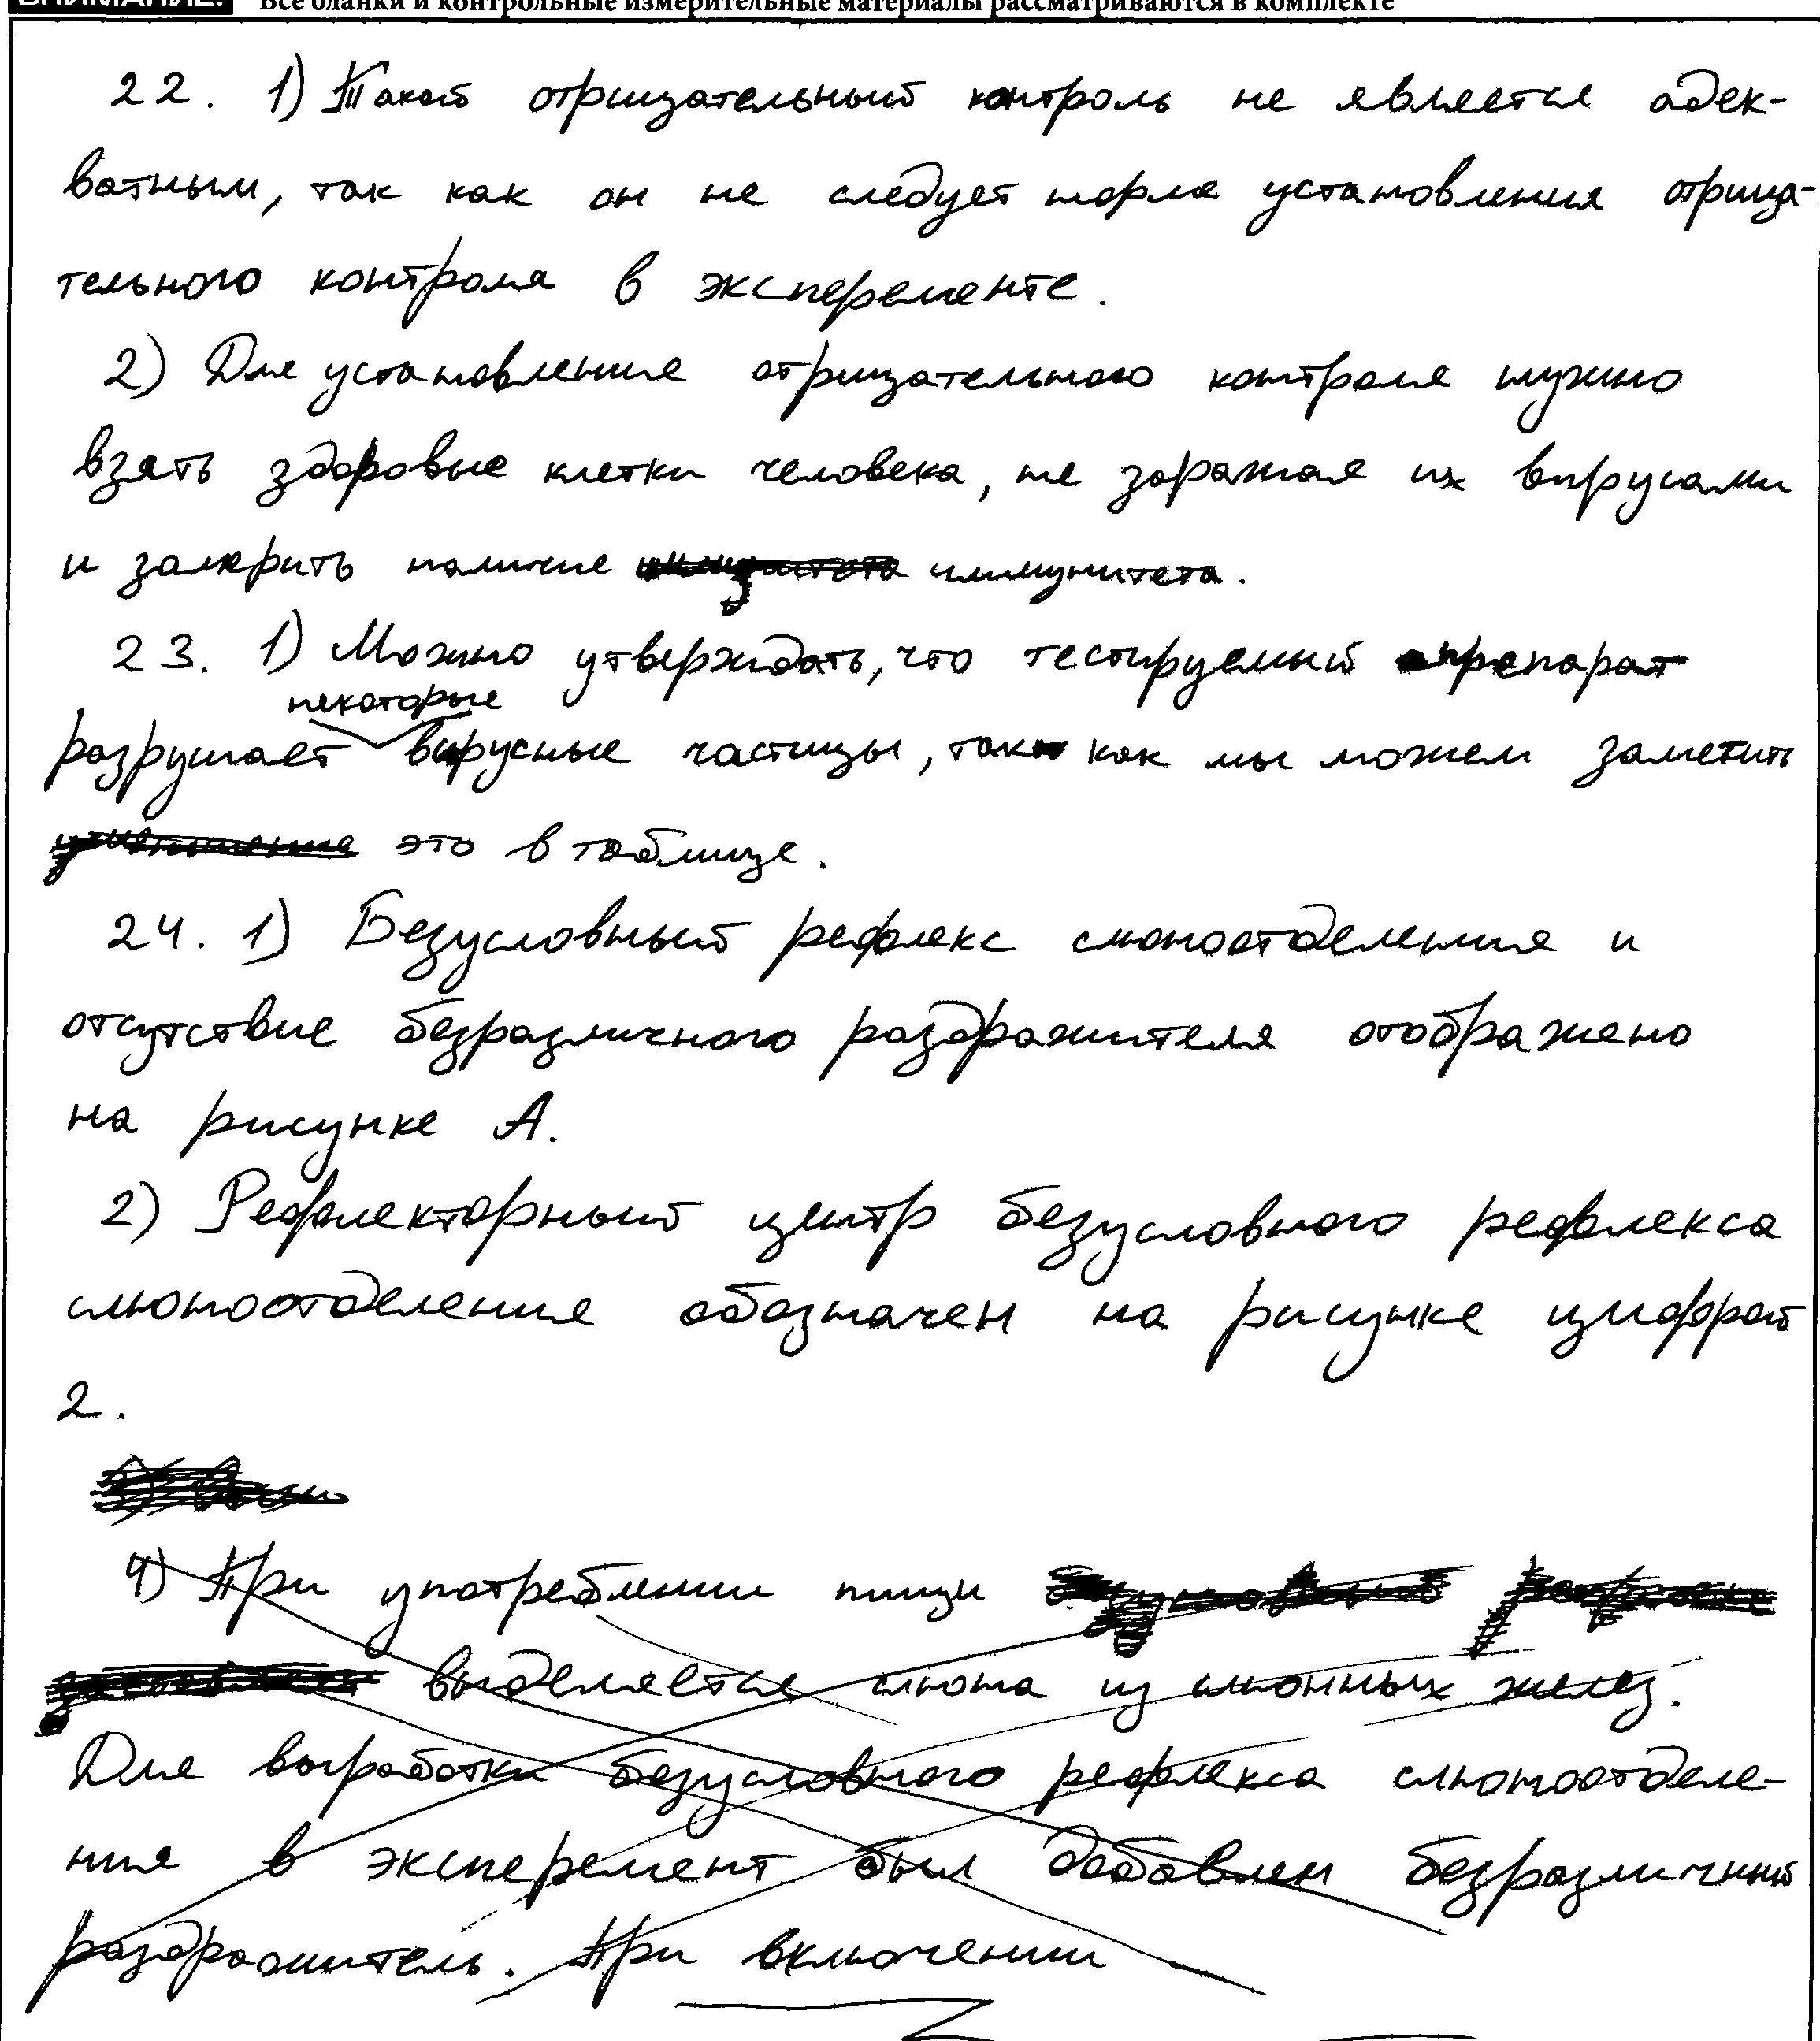 ВНИМАНИЕ! Все бланки и контрольные измерительные материалы рассматриваются в комплекте
22. 1) Такой отрицательный контроль не является адек-
ватным, так как он не следует норме установления отрица-
тельного контроля в эксперементе.
2) Для установления отрицательного контроля нужно
взять здоровые клетки человека, не заражая их вирусами
и замерить наличие иммунитета.
23. 1) Можно утверждать, что тестируемый препарат
некоторые
разрушает вирусные частицы, так как мы можем заметить
это в таблице.
24. 1) Безусловный рефлекс слюноотделения и
отсутствие безразличного раздражителя отображено
на рисунке А.
2) Рефлекторный центр безусловного рефлекса
слюноотделения обозначен на рисунке цифрой
2.
4) При употреблении пищи
выделяется слюна из слюнных желез.
Для выработки безусловного рефлекса слюноотделе-
ния в эксперемент был добавлен безразличный
раздражитель. При включении